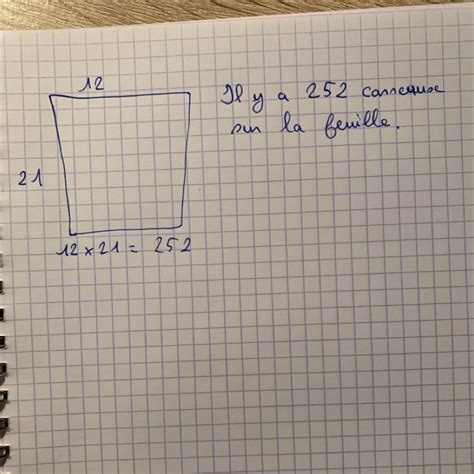 12
21
12 × 21 = 252
Il y a 252 carreaux
sur la feuille.